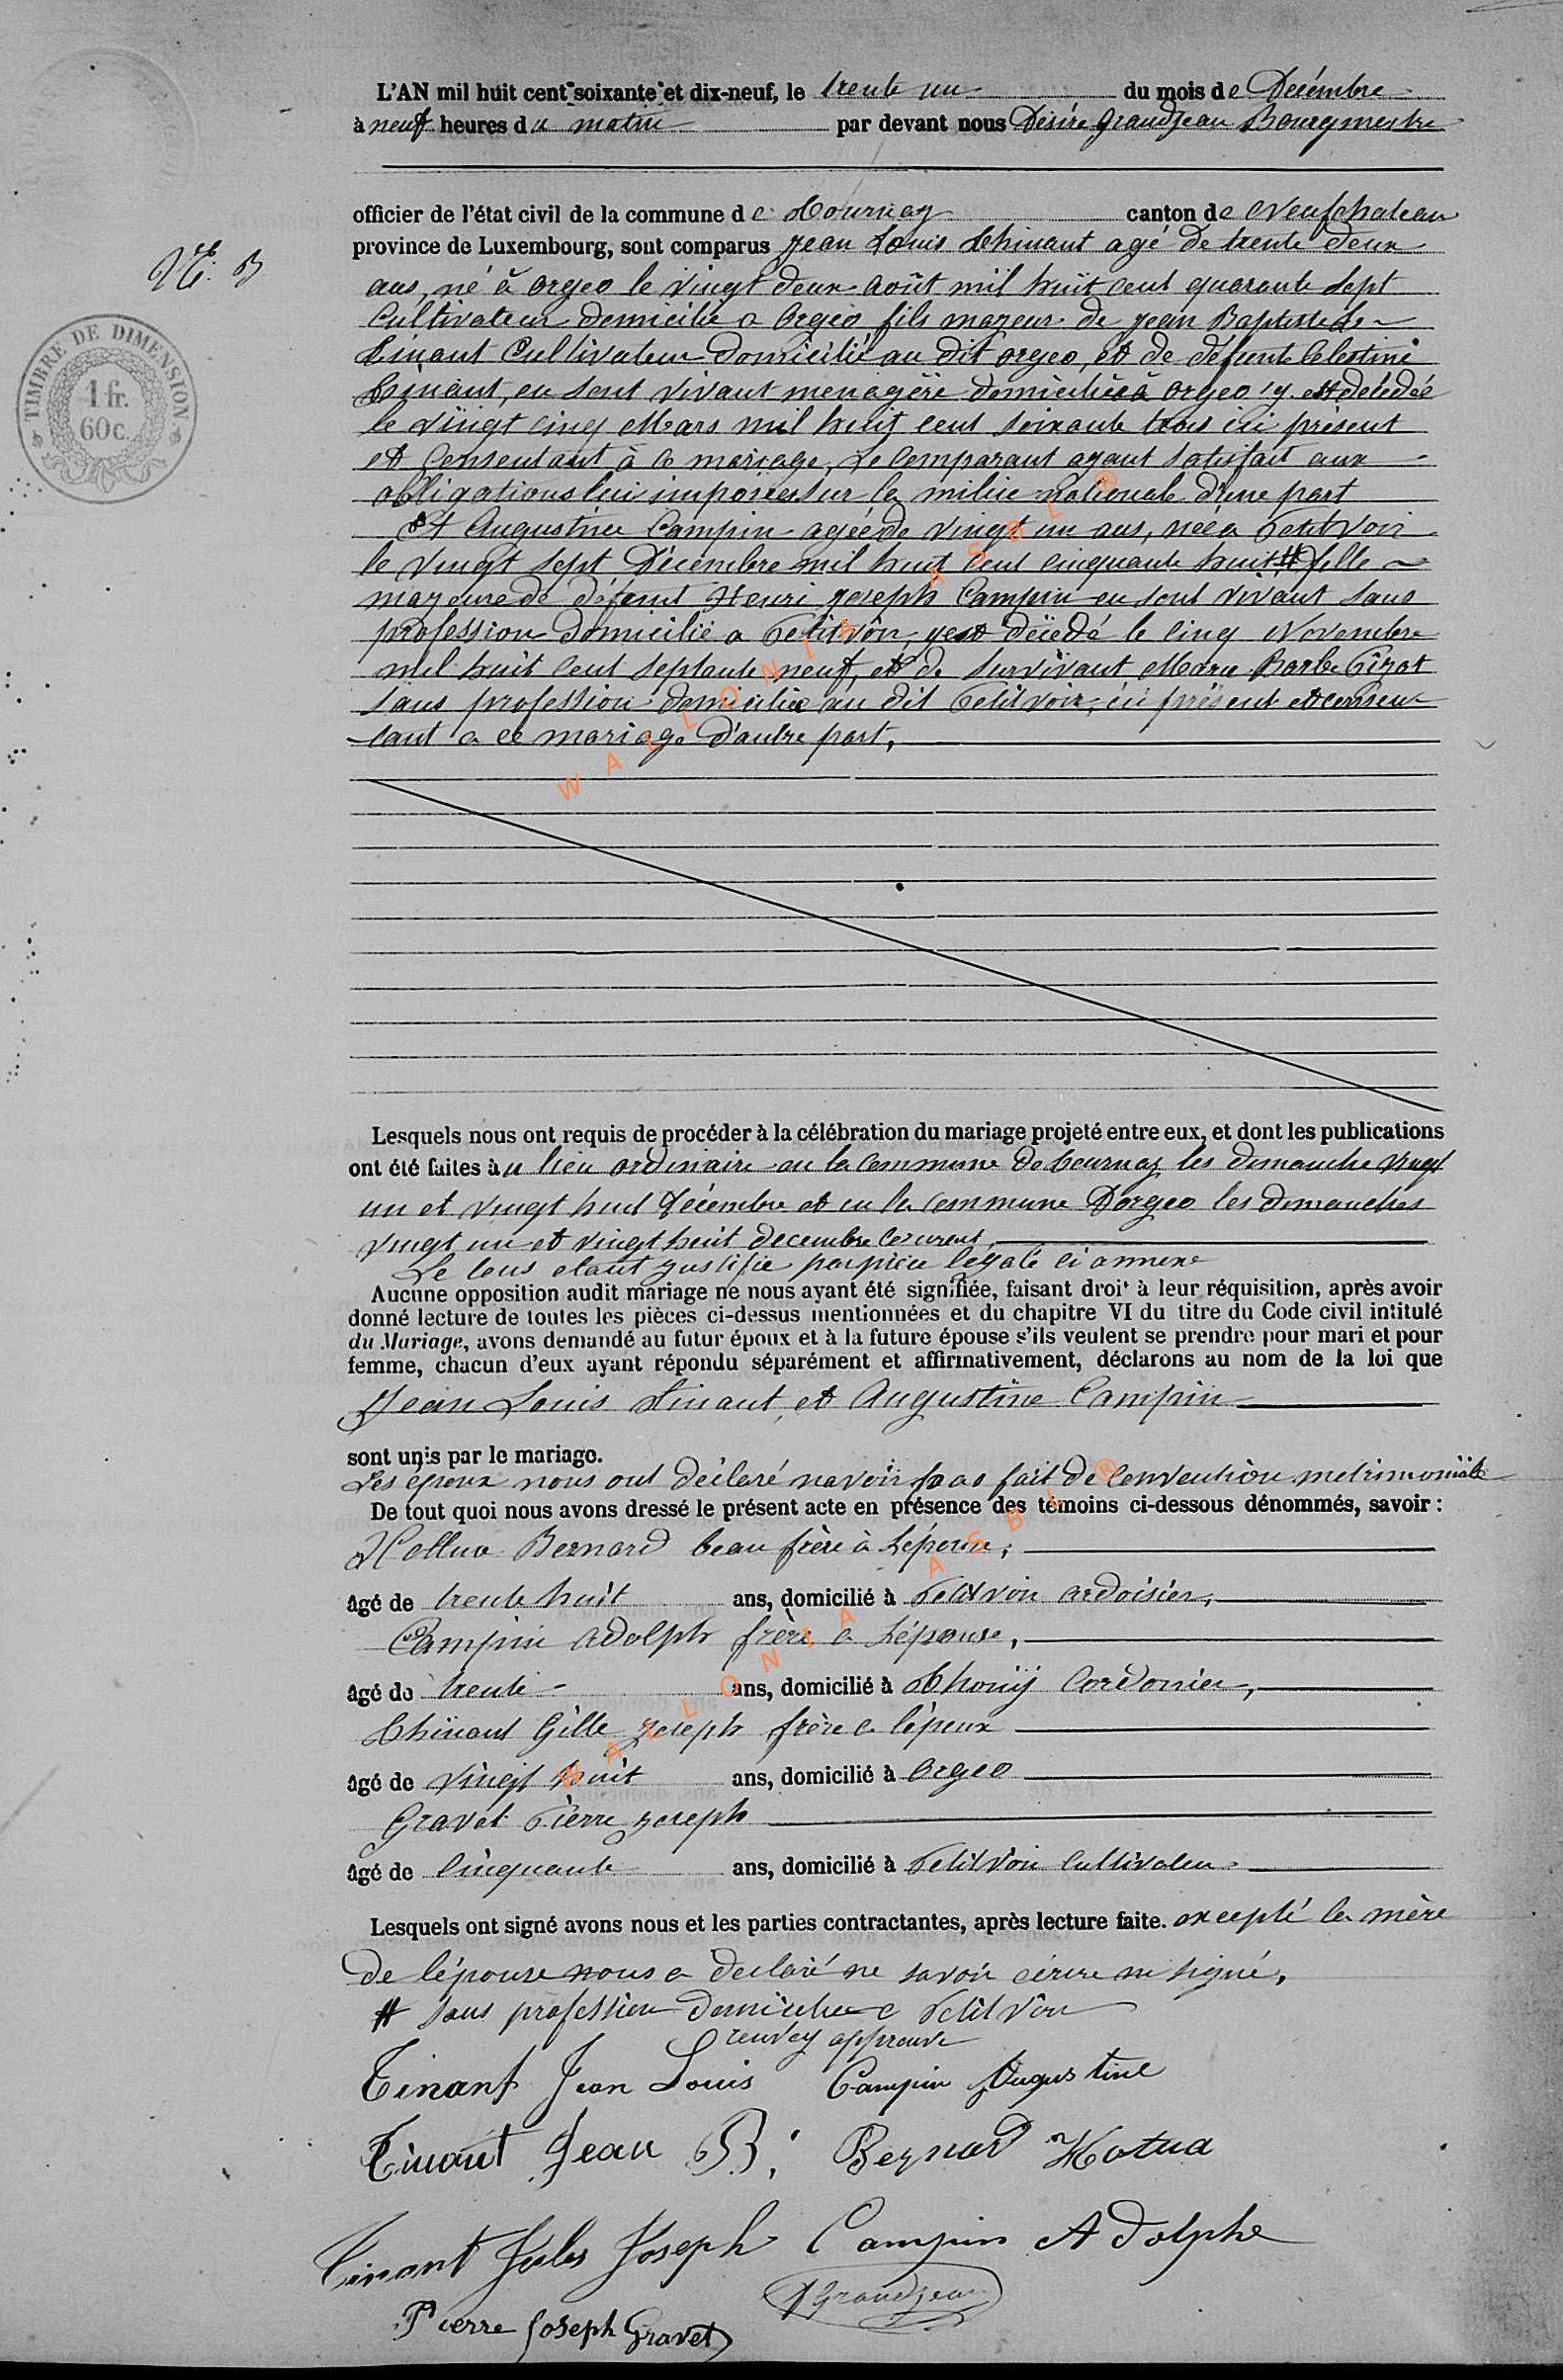 L'AN mil huit cent soixante et dix-neuf, le trente un du mois de Décembre
à neuf heures du matin par devant nous Désiré Grandjean Bourgmestre
officier de l'état civil de la commune de Tournay canton de Neufchateau
province de Luxembourg, sont comparus Jean Louis Thinant agé de trente deux
N°. B
ans, né à orgeo le vingt deux août mil huit cent quarante sept
Cultivateur domicilié a Orgeo fils mayeur de Jean Baptiste
Tinant Cultivateur domicilié au dit orgeo, et de défunte Celestine
en sont vivant menagère domiciliée à orgeo y est décédée
le vingt cinq Mars mil huit cent soixante trois ici présent
et Consentant à ce mariage, Le Comparant ayant satisfait aux
obligations lui imposées sur la milice nationale d'une part
Et Augustine Campin agée de vingt un ans, née a Petitvoir
le vingt sept Décembre mil huit cent cinquante huit # fille
mayeure de défunt Henri Joseph Campin en sont vivant sans
profession domicilié a Petitvoir, y est décédé le cinq Novembre
mil huit cent septante neuf, et de survivant Marie Barbe
sans profession domiciliée au dit Petitvoir, ici présent et consen
tant a ce mariage d'autre part,
Lesquels nous ont requis de procéder à la célébration du mariage projeté entre eux, et dont les publications
ont été faites au lieu ordinaire en la Commune de tournay les dimanche vingt
un et vingt huit Décembre et en la Commune D'orgeo les dimanches
vingt un et vingt huit decembre
Le tous etant justifie par pièce légale ci annexe
Aucune opposition audit mariage ne nous ayant été signifiée, faisant droit à leur réquisition, après avoir
donné lecture de toutes les pièces ci-dessus mentionnées et du chapitre VI du titre du Code civil intitulé
du Mariage, avons demandé au futur époux et à la future épouse s'ils veulent se prendre pour mari et pour
femme, chacun d'eux ayant répondu séparément et affirmativement, déclarons au nom de la loi que
Jean Louis Tinant, et Augustine Campin
sont unis par le mariage.
Les époux nous ont déclaré navoir pas fait de Convention metrimoniale
De tout quoi nous avons dressé le présent acte en présence des témoins ci-dessous dénommés, savoir :
Bernard beau frère à l'épouse,
âgé de trente huit ans, domicilié à Petitvoir ardoisier,
Campin Adolph frère a l'épouse,
âgé de trente ans, domicilié à Cordonier,
Thinant Gille Joseph frère a l'épeux
âgé de vingt huit ans, domicilié à Orgeo
Gravet Pierre Joseph
âgé de Cinquante ans, domicilié à Petitvoir Cultivateur
Lesquels ont signé avons nous et les parties contractantes, après lecture faite. excepté la mère
de l'épouse nous a declaré ne savoir écrire ni signé,
# sans profession domiciliée a Petitvoir
renvoy approuvé
Tinant Jean Louis Campin Augustine
Tinant Jean B. Bernard Hotua
Tinant Jules Joseph Campin Adolphe
Grandjean
Pierre Joseph Gravet
TIMBRE DE DIMENSION
1 fr.
60 c.
WALLONIA ASBL ®
WALLONIA ASBL ®